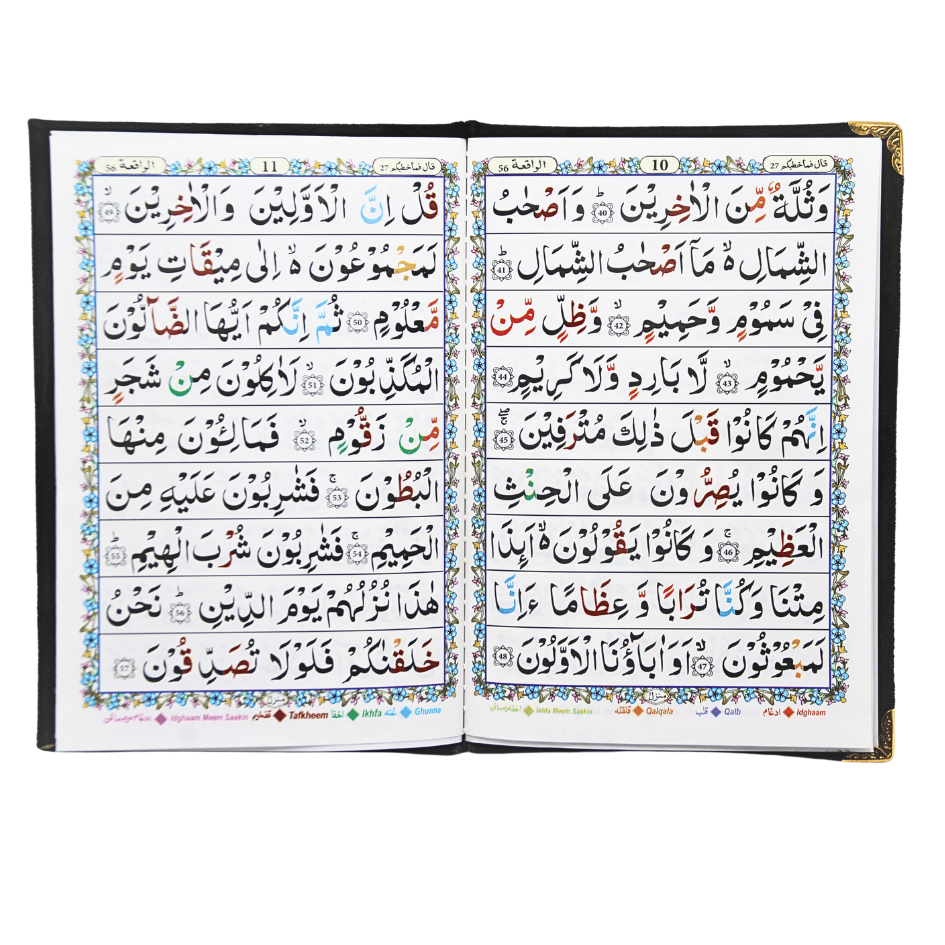 قال فما خطبكم 27
10
الواقعة 56
وَثُلَّةٌ مِّنَ الْاٰخِرِيْنَ ؕ 40 وَاَصْحٰبُ
الشِّمَالِ ۙ مَاۤ اَصْحٰبُ الشِّمَالِ ؕ 41
فِيْ سَمُوْمٍ وَّحَمِيْمٍ ۙ 42 وَّظِلٍّ مِّنْ
يَّحْمُوْمٍ ۙ 43 لَّا بَارِدٍ وَّلَا كَرِيْمٍ 44
اِنَّهُمْ كَانُوْا قَبْلَ ذٰلِكَ مُتْرَفِيْنَ ۚۖ 45
وَكَانُوْا يُصِرُّوْنَ عَلَى الْحِنْثِ
الْعَظِيْمِ ۚ 46 وَكَانُوْا يَقُوْلُوْنَ ۙ اَئِذَا
مِتْنَا وَكُنَّا تُرَابًا وَّ عِظَامًا ءَاِنَّا
لَمَبْعُوْثُوْنَ ۙ 47 اَوَ اٰبَآؤُنَا الْاَوَّلُوْنَ 48
منزل
Idghaam ادغام
Qalb قلب
Qalqala قلقله
Ikhfa Meem Saakin اخفا میم ساکن
قال فما خطبكم 27
11
الواقعة 56
قُلْ اِنَّ الْاَوَّلِيْنَ وَالْاٰخِرِيْنَ ۙ 49
لَمَجْمُوْعُوْنَ ۙ اِلٰى مِيْقَاتِ يَوْمٍ
مَّعْلُوْمٍ 50 ثُمَّ اِنَّكُمْ اَيُّهَا الضَّآلُّوْنَ
الْمُكَذِّبُوْنَ ۙ 51 لَاٰكِلُوْنَ مِنْ شَجَرٍ
مِّنْ زَقُّوْمٍ ۙ 52 فَمَالِـُٔوْنَ مِنْهَا
الْبُطُوْنَ ۚ 53 فَشٰرِبُوْنَ عَلَيْهِ مِنَ
الْحَمِيْمِ ۚ 54 فَشٰرِبُوْنَ شُرْبَ الْهِيْمِ ؕ 55
هٰذَا نُزُلُهُمْ يَوْمَ الدِّيْنِ ؕ 56 نَحْنُ
خَلَقْنٰكُمْ فَلَوْلَا تُصَدِّقُوْنَ 57
منزل
Ghunna غنه
Ikhfa اخفا
Tafkheem تفخیم
Idghaam Meem Saakin ادغام میم ساکن